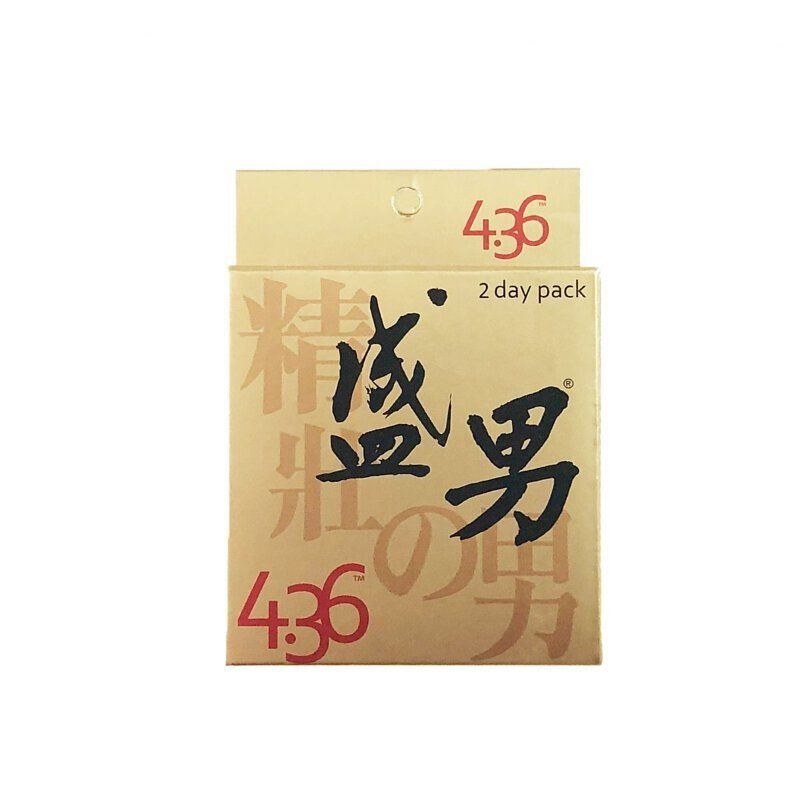 4.36™
2 day pack
盛男®
精壯の男
4.36™